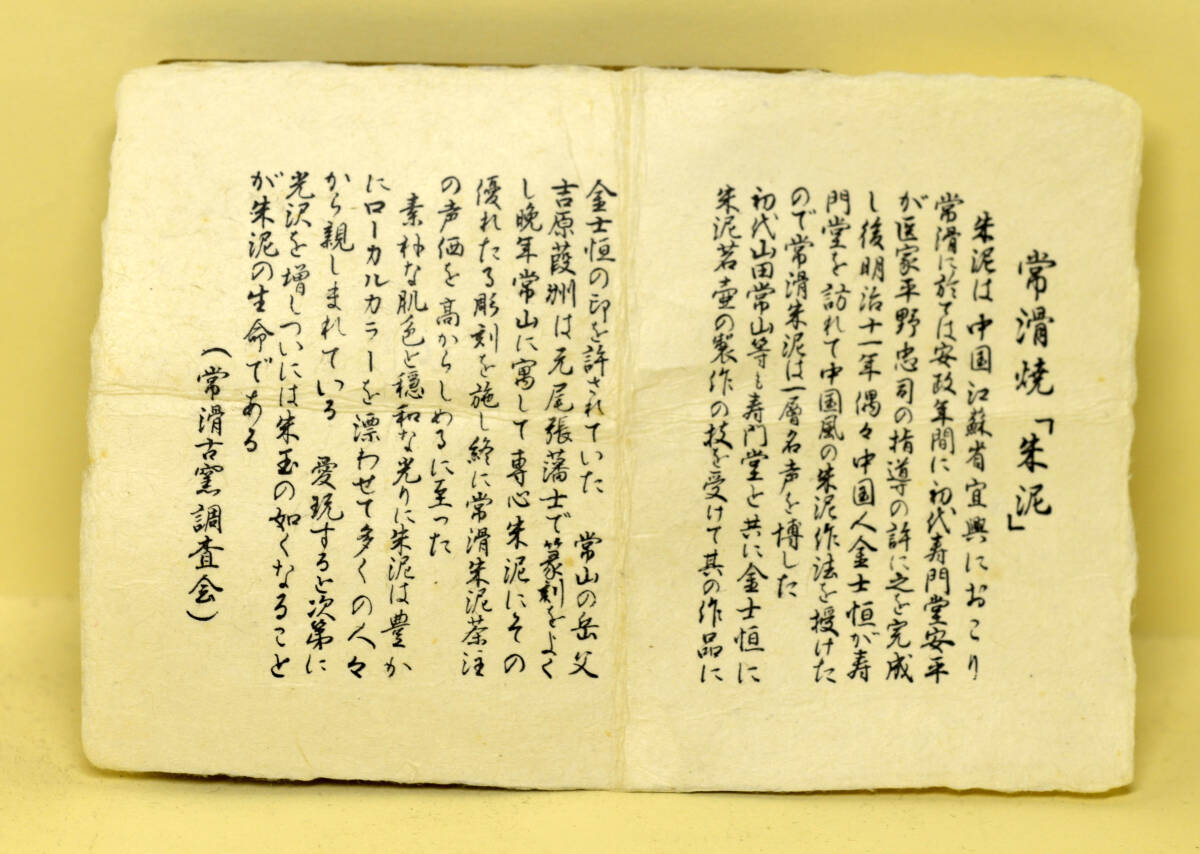 常滑焼「朱泥」
朱泥は中国江蘇省宜興におこり
常滑に於ては安政年間に初代寿門堂安平
が医家平野忠司の指導の許に之を完成
し後明治十一年偶々中国人金士恒が寿
門堂を訪れて中国風の朱泥作法を授けた
ので常滑朱泥は一層名声を博した
初代山田常山等も寿門堂と共に金士恒に
朱泥茗壷の製作の技を受けて其の作品に
金士恒の印を許されていた　常山の岳父
吉原葭洲は元尾張藩士で篆刻をよく
し晩年常山に寓して専心朱泥にその
優れたる彫刻を施し終に常滑朱泥茶注
の声価を高からしめるに至った
素朴な肌色と穏和な光りに朱泥は豊か
にローカルカラーを漂わせて多くの人々
から親しまれている　愛玩すると次第に
光沢を増しついには朱玉の如くなること
が朱泥の生命である
（常滑古窯調査会）